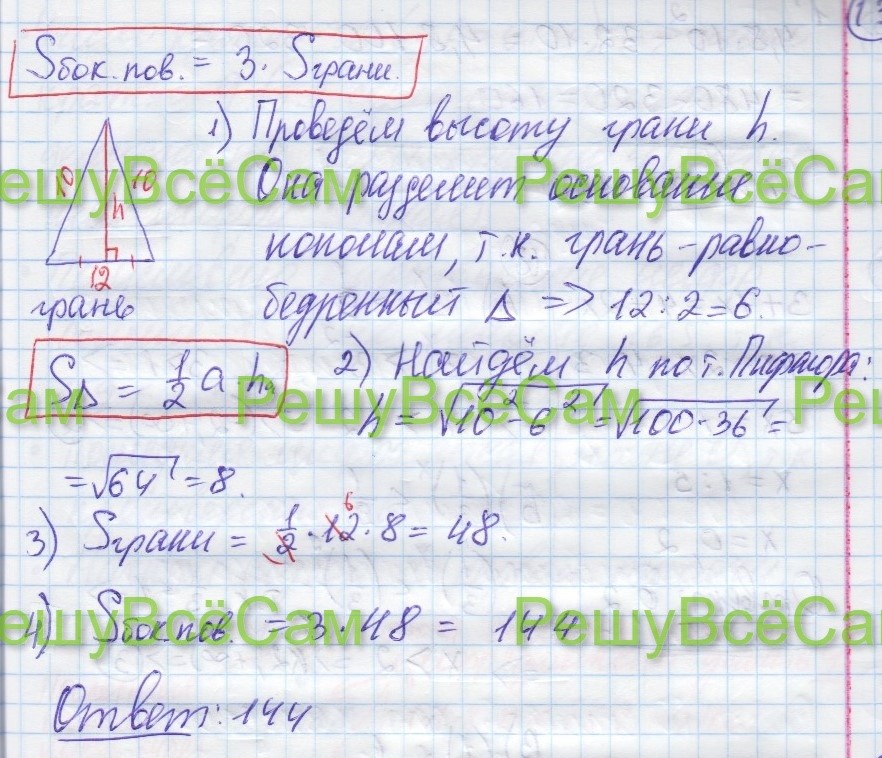 Sбок. пов. = 3 · Sграни.
1) Проведём высоту грани h.
Она разделит основание
пополам, т.к. грань - равно-
бедренный Δ => 12 : 2 = 6.
10 10
h
12
грань
SΔ = 1/2 a hₐ
2) Найдём h по т. Пифагора:
h = √10² - 6² = √100 - 36 =
= √64 = 8.
3) Sграни = 1/2 · 12 · 8 = 48.
6
4) Sбок пов. = 3 · 48 = 144
Ответ: 144
РешуВсёСам РешуВсёСам
Сам РешуВсёСам Ре
РешуВсёСам РешуВсёСам